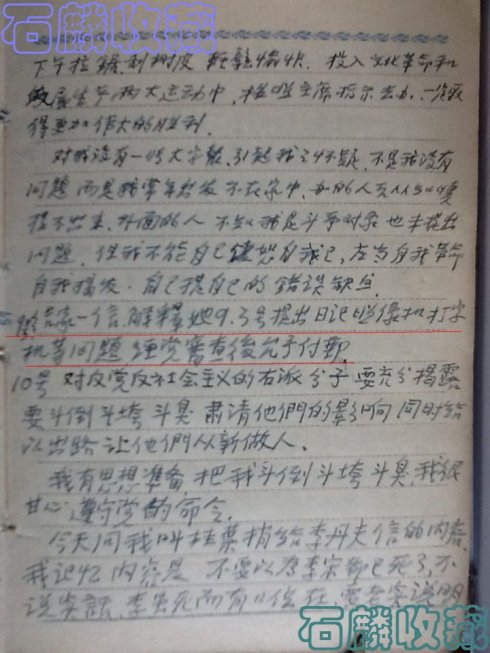 石麟收藏
下午拉锯剥树皮 轻松愉快. 投入文化革命和
生产两大运动中, 按照主席指示去办, 一定取
得更加伟大的胜利.
对我没有一张大字报, 引起我之怀疑, 不是我没有
问题 而是我常年出发不在家中,
提不出来, 外面的人 不知我是斗争对象 也未提出
问题. 但我不能自己饶恕自我己, 应当自我革命
自我揭发. 自己提自己的错误缺点.
一信, 解释她9.3号提出日记照像机打字
机等问题 经党审查後允予付邮.
10号 对反党反社会主义的右派分子 要充分揭露
要斗倒斗垮斗臭 肃清他們的影响 同时给
以出路 让他們从新做人.
我有思想準备 把我斗倒斗垮斗臭, 我很
甘心 遵守党的命令.
今天问我叫桂葉梢给李丹夫信的内容
我记忆内容是 不要以为李宗 已死了, 不
说实話, 李虽死而有 在,
石麟收藏